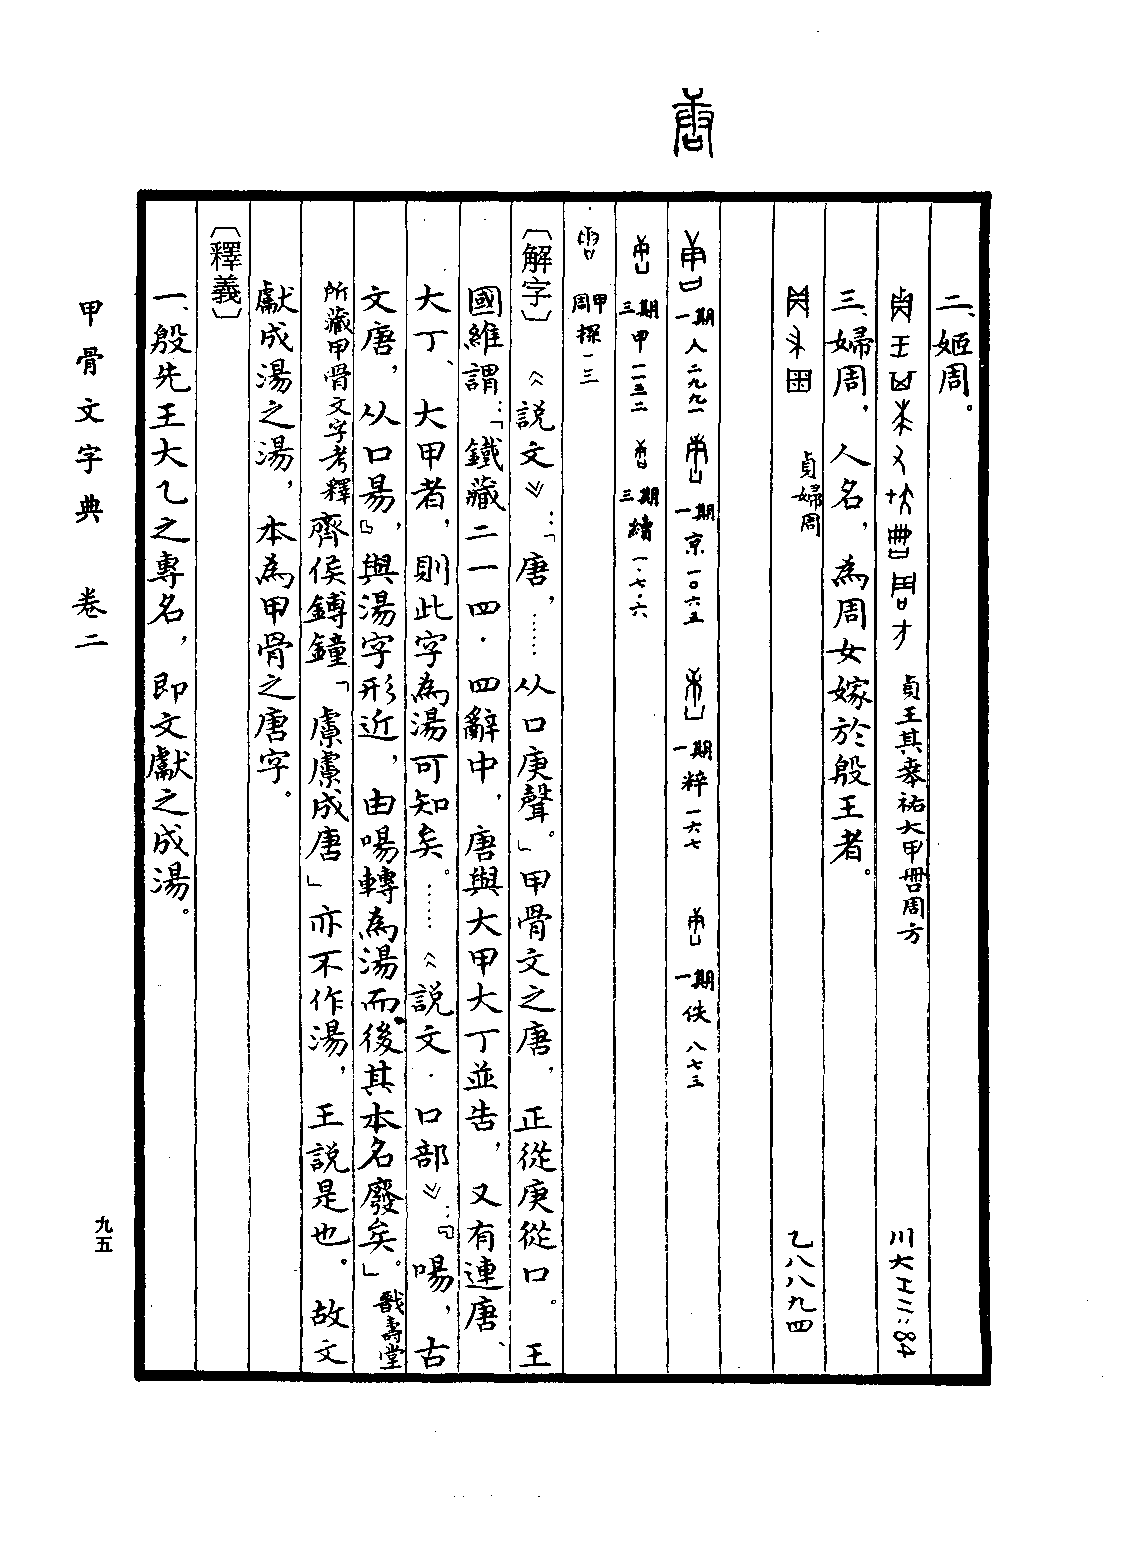 唐
二、姬周。
貞王其桒祐大甲𠭯周方
川大工二:84
三、婦周，人名，為周女嫁於殷王者。
貞婦周
乙八八九四
一期人二九九一
一期京一〇六五
一期粹一六七
一期佚八七三
三期甲一一三二
三期續一·七·六
周甲探一三
〔解字〕《說文》：「唐，……从口庚聲。」甲骨文之唐，正從庚從口。王
國維謂：「鐵藏二一四·四辭中，唐與大甲大丁並告，又有連唐、
大丁、大甲者，則此字為湯可知矣。……《說文·口部》：『啺，古
文唐，从口昜』，與湯字形近，由啺轉為湯而後其本名廢矣。」戩壽堂
所藏甲骨文字考釋齊侯鎛鐘「虩虩成唐」亦不作湯，王說是也。故文
獻成湯之湯，本為甲骨之唐字。
〔釋義〕
一、殷先王大乙之專名，即文獻之成湯。
甲骨文字典 卷二
九五